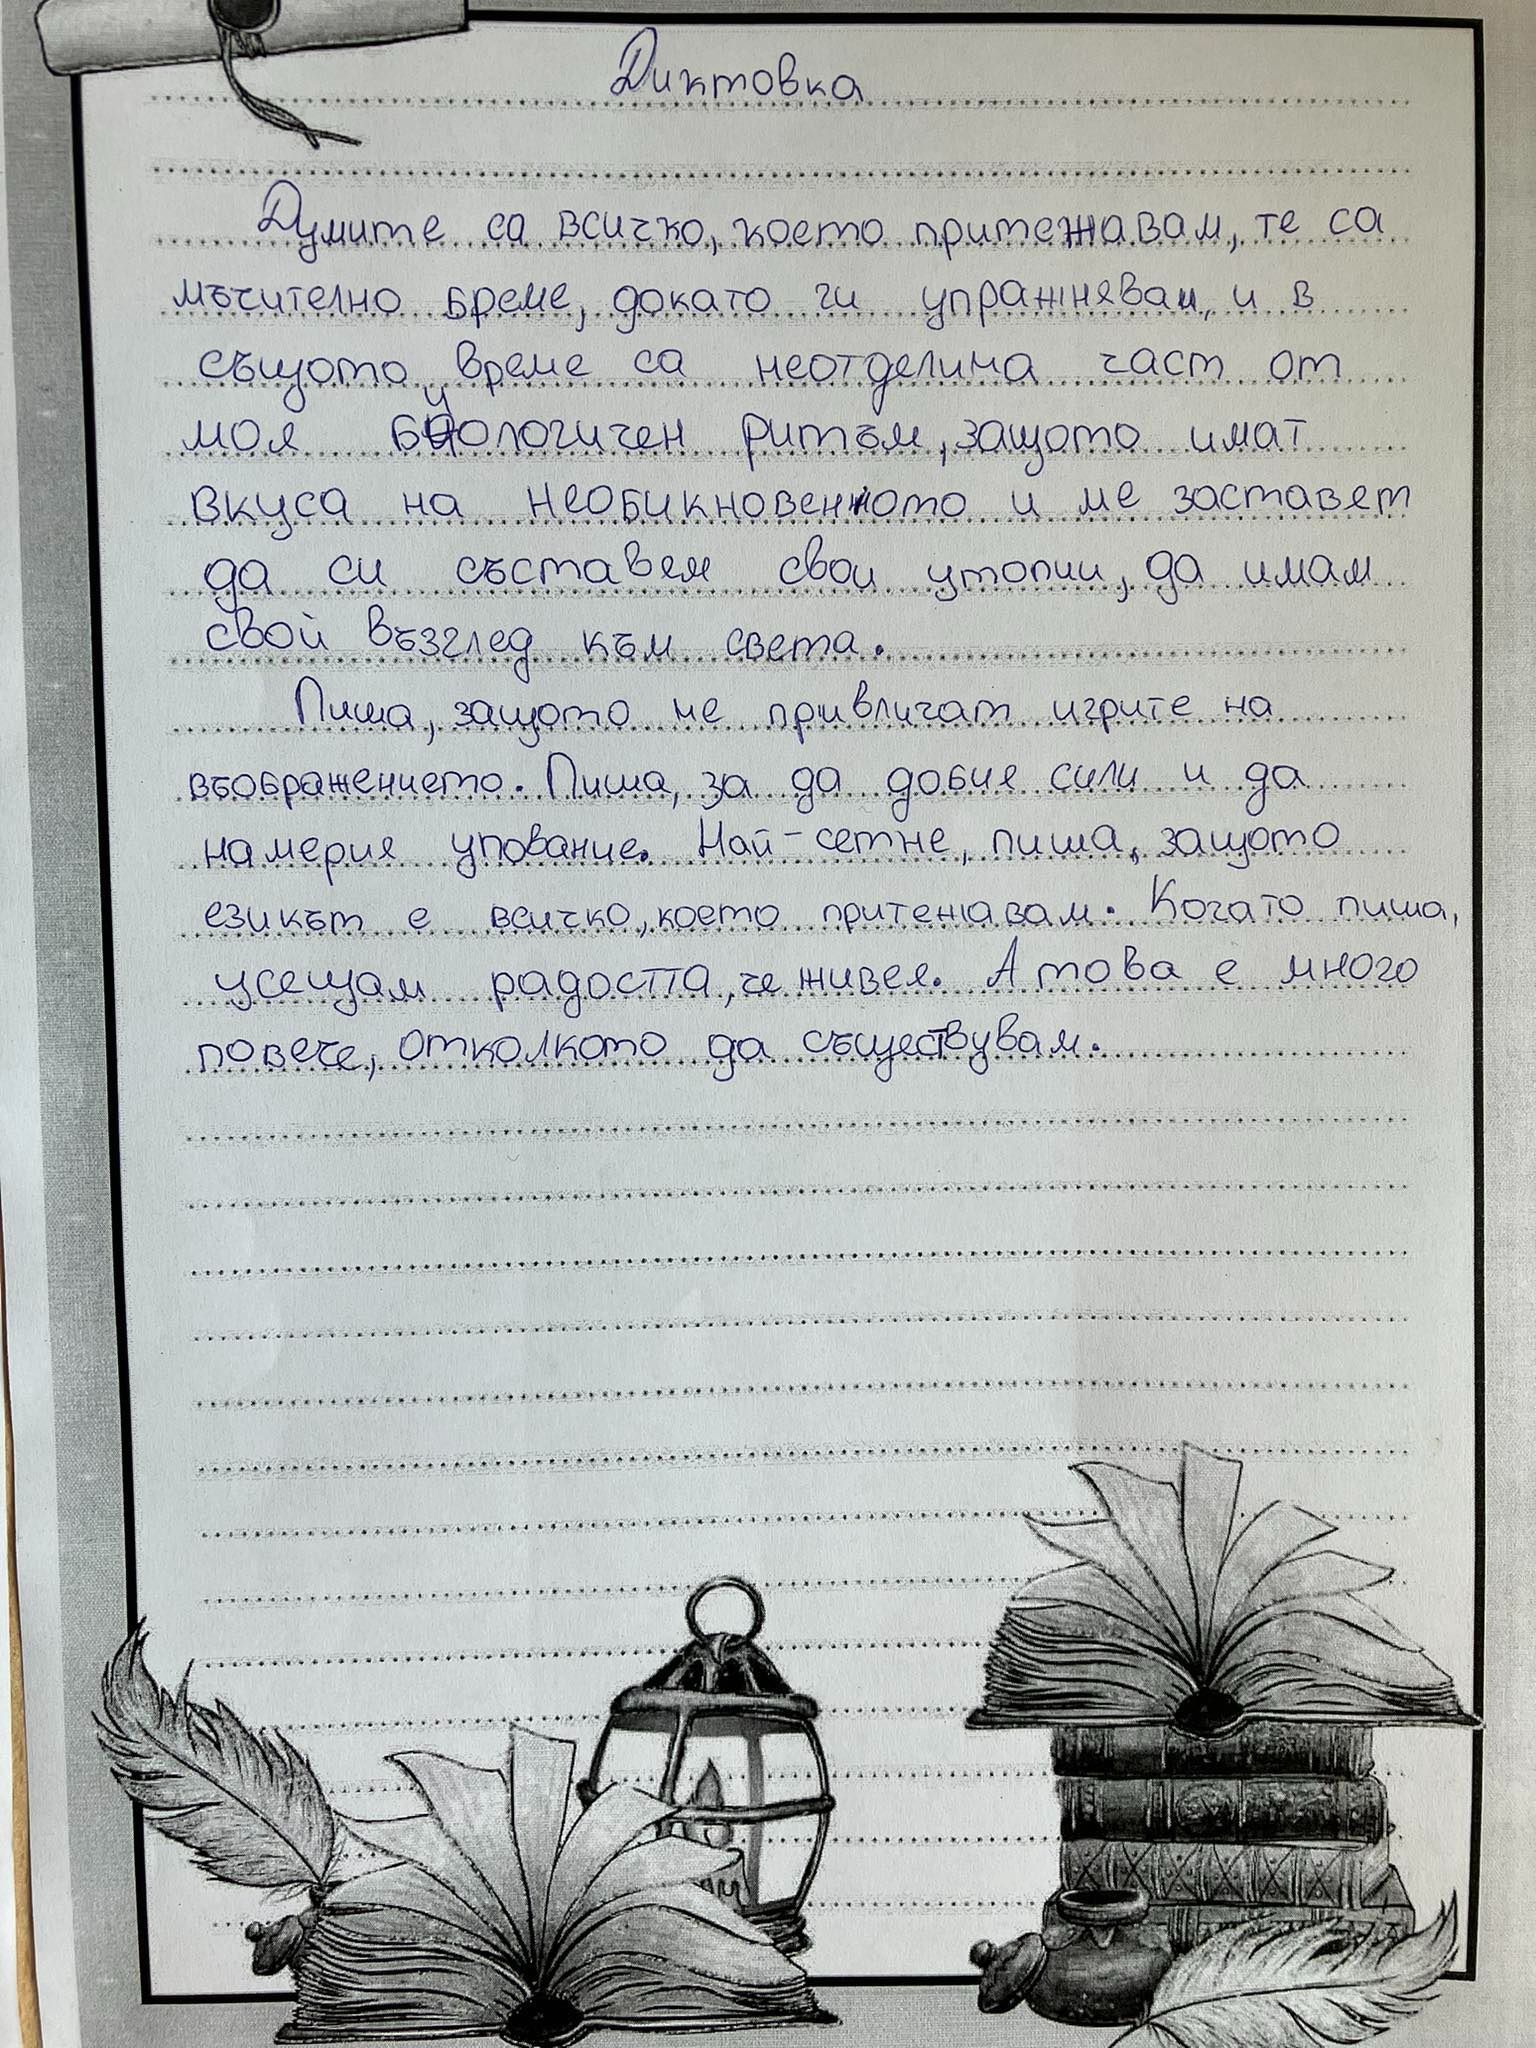 Диктовка
Думите са всичко, което притежавам, те са
мъчително бреме, докато ги упражнявам, и в
същото време са неотделима част от
моя биологичен ритъм, защото имат
вкуса на необикновенното и ме заставят
да си съставям свои утопии, да имам
свой възглед към света.
Пиша, защото ме привличат игрите на
въображението. Пиша, за да добия сили и да
намерия упование. Най-сетне, пиша, защото
езикът е всичко, което притежавам. Когато пиша,
усещам радостта, че живея. А това е много
повече, отколкото да съществувам.